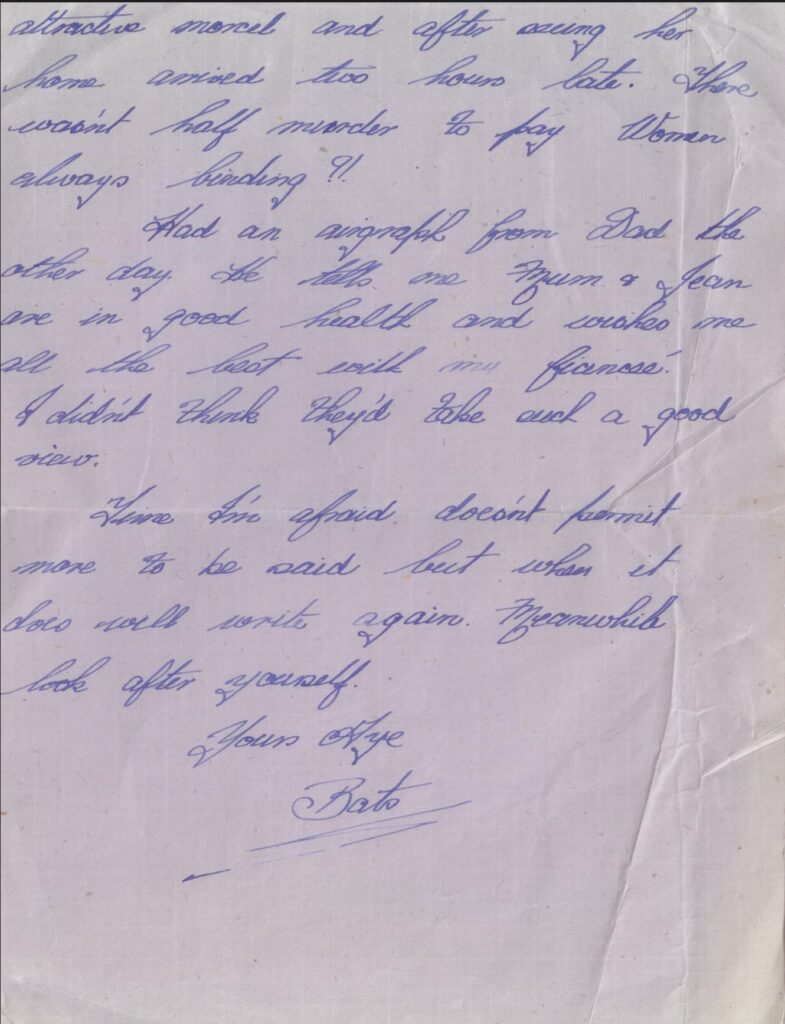 attractive morcel and after seeing her
home arrived two hours late. There
wasn't half murder to pay Women
always binding ?!!
Had an airgraph from Dad the
other day. He tells me Mum & Jean
are in good health and wishes me
all the best with my fiancsé.
I didn't think they'd take such a good
view.
Time I'm afraid doesn't permit
more to be said but when it
does will write again. Meanwhile
look after yourself.
Yours Aye
Bats